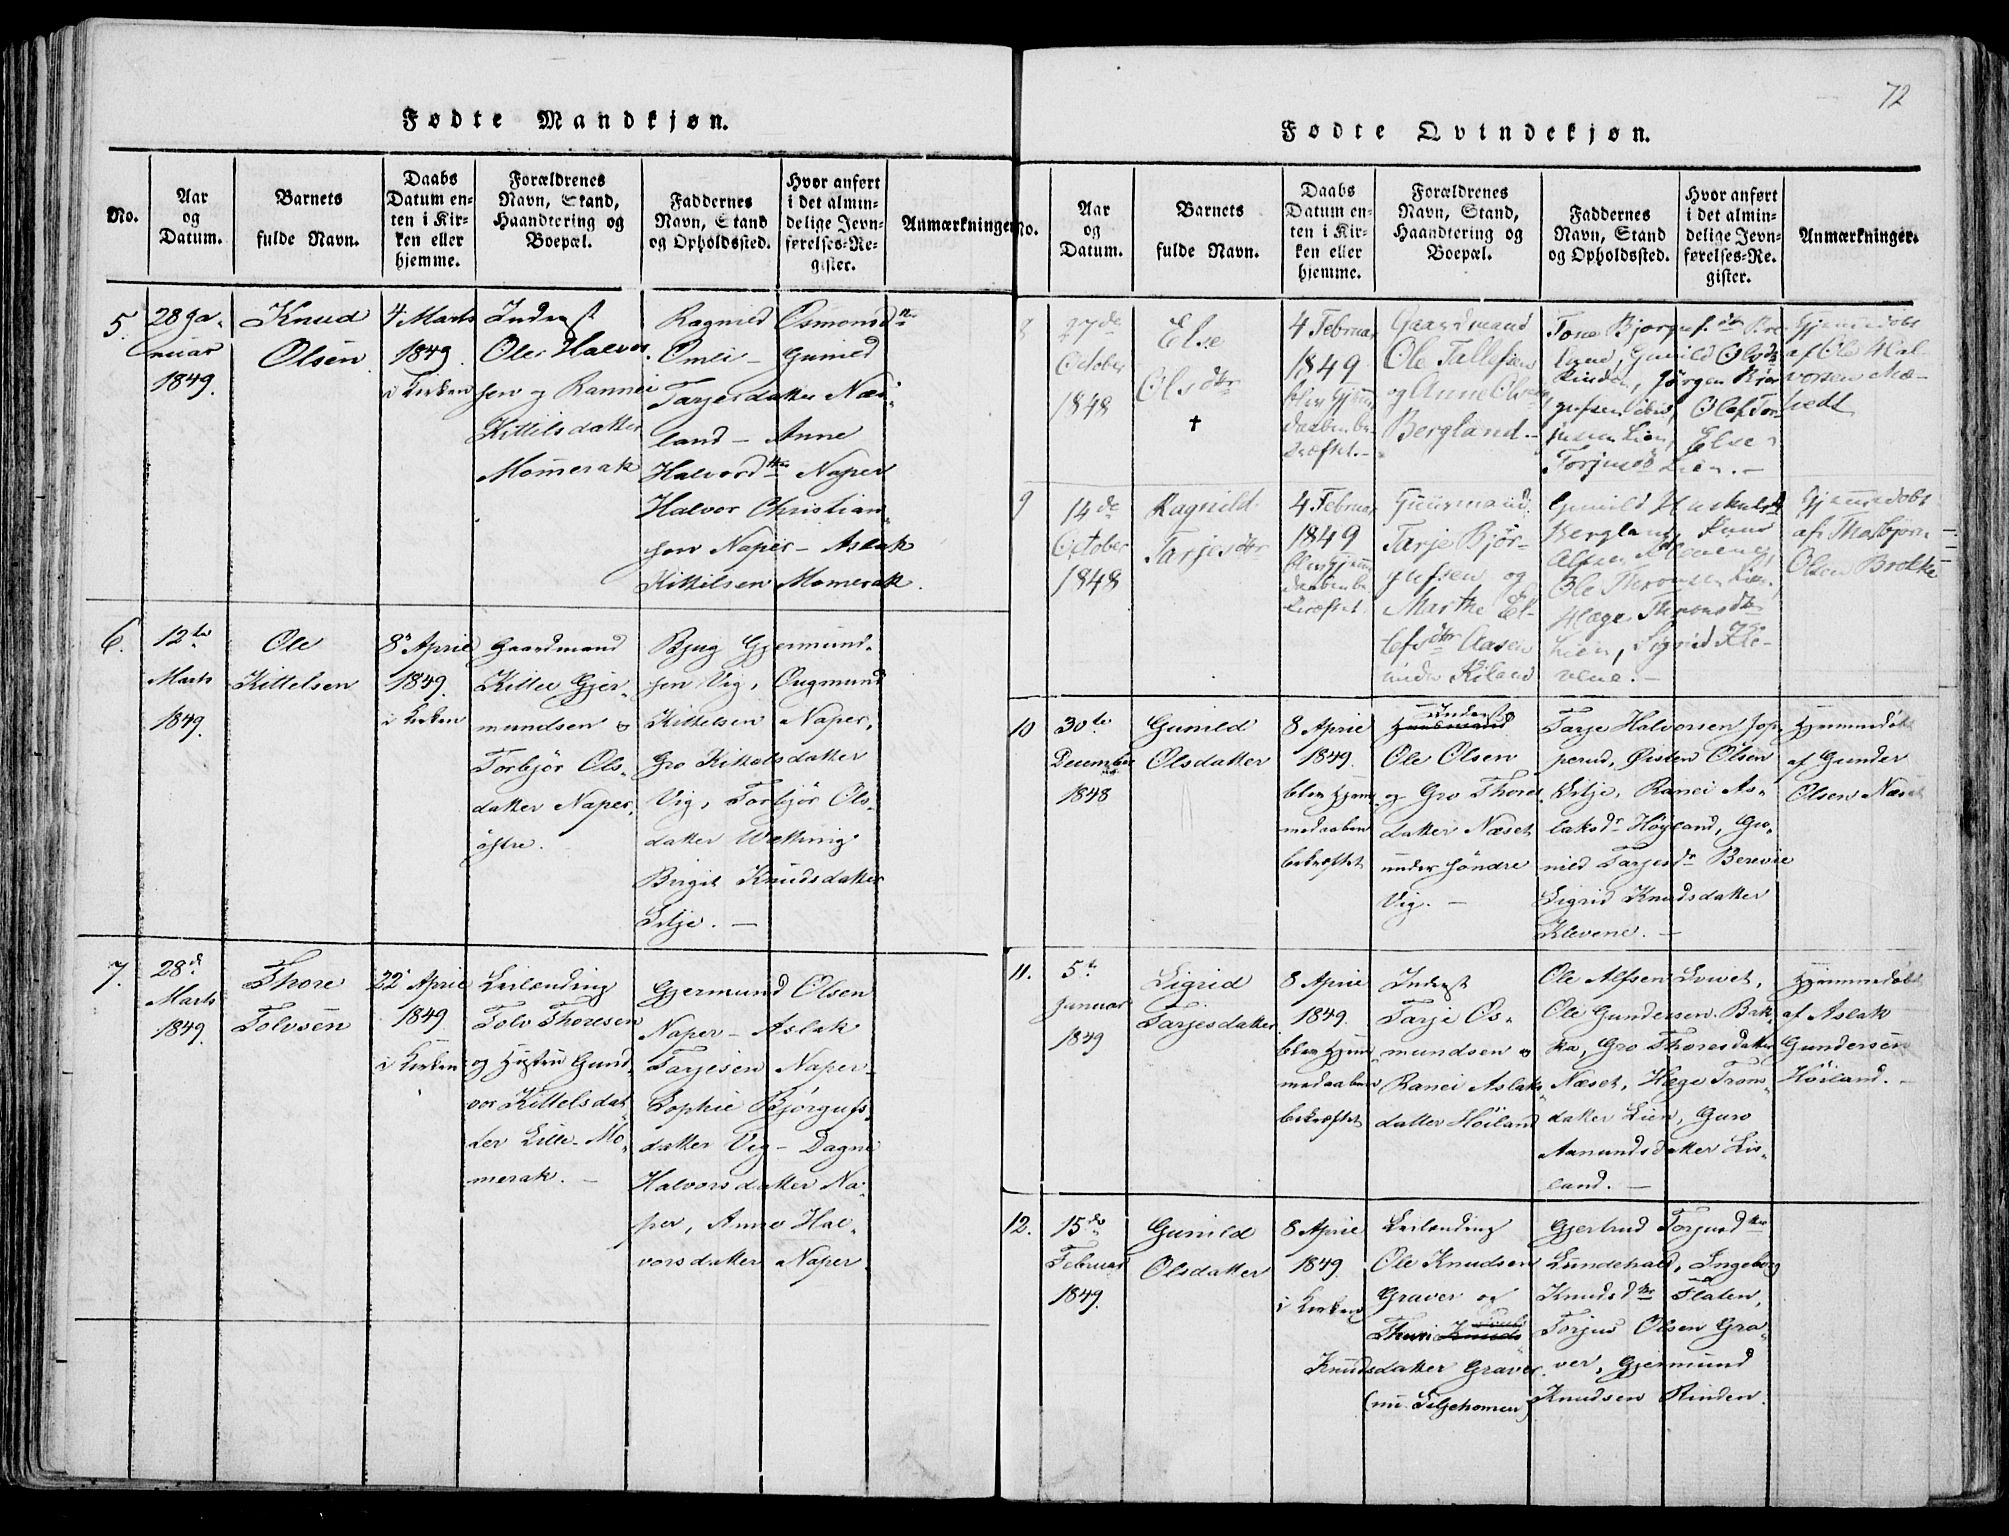 72
Fødte Mandkjøn.
No.
Aar
og
Datum.
Barnets
fulde Navn.
Daabs
Datum en-
ten i Kir-
ken eller
hjemme.
Forældrenes
Navn, Stand,
Haandtering og
Boepæl.
Faddernes
Navn, Stand
og Opholdssted.
Hvor anført
i det almin-
delige Jevn-
førelses-Re-
gister.
Anmærkninger.
5.
28 Ja-
nuar
1849.
Knud
Olsen
4 Marts
1849.
i Kirken
Inderst
Ole Halvor
sen og Rannei
Kittilsdatter
Momerak
Ragnild Osmonsd
Omli - Gunild
Tarjesdatter Næs-
land - Anne
Halvord Naper
Halvor Christian-
sen Naper - Aslak
Kittilsen Momerak.
6.
12te
Marts
1849.
Ole
Kittelsen
8 April
1849.
i Kirken
Gaardmand
Kittel Gjer-
mundsen &
Torbjør Ols-
datter Naper,
östre.
Bjug Gjermund-
sen Vig, Ougmund
Kittelsen Naper,
Gro Kittelsdatter
Vig, Torbjör Ols-
datter
Birgit Knudsdatter
Lilje. -
7.
28d
Marts
1849.
Thore
Tolvsen
22 April
1849
i Kirken
Leilending
Tolv Thoresen
og Hustru Gund-
vor Kittelsdat-
ter Lille-Mo-
merak. -
Gjermund Olsen
Naper - Aslak
Tarjesen Naper -
Sophie Bjørgufs-
datter Vig - Dagne
Halvorsdatter Na-
per, Anne Hal-
vorsdatter Naper
Fødte Qvindekjøn.
No.
Aar
og
Datum.
Barnets
fulde Navn.
Daabs
Datum en-
ten i Kir-
ken eller
hjemme.
Forældrenes
Navn, Stand,
Haandtering og
Boepæl.
Faddernes
Navn, Stand
og Opholdssted.
Hvor anført
i det almin-
delige Jevn-
førelses-Re-
gister.
Anmærkninger.
8
27de
October
1848
Else
Olsdtr
†
4 Februar
1849
blev Hjem̄e
daaben be-
kræftet. -
Gaardmand
Ole Tellefsen
og Anne Olsdtr
Bergland. -
Tone Bjørgufsdtr
Gunild Olsdtr
Rinden, Jörgen Bjør-
gufsen ibid, Olaf Tor-
jusen Lien, Else
Torjusd Lien. -
Hjem̄edøbt
af Ole Hal-
vorsen
9
14de
October
1848
Ragnild
Tarjesdtr
4 Februar
1849
blev Hjem̄e
daaben be-
kræftet.
Huusmand
Tarje Björ-
gufsen og
Marthe El-
lefsdtr Aasen
under Kiland
Gunild
Bergland, Knud
Alfsen
Ole Thronsen Lien,
Hæge Thronsdtr
Lien, Sigrid Kle-
vene. -
Hjem̄edøbt
af Thorbjørn
Olsen Brokke
10
30te
December
1848
Gunild
Olsdatter
8 April
1849.
blev Hjem-
medaaben
bekræftet
Inderst
Huusmand
Ole Olsen
og Gro Thores
datter Næset
under søndre
Vig. -
Tarje Halvorsen Jop-
perud, Østen Olsen
Lilje, Ranei As-
laksdr Høyland, Gu-
nild Tarjesdr Berevie
Sigrid Knudsdatter
Klevene. -
Hjemmedøbt
af Gunder
Olsen Næset
11.
5te
Januar
1849
Sigrid
Tarjesdatter
8 April
1849.
blev Hjem-
medaaben
bekræftet
Inderst
Tarje Os-
mundsen &
Ranei Aslaks-
datter Høiland
Ole Alfsen
Ole Gundersen Bak-
ka, Gro Thoresdatter
Næset, Hæge Trons-
datter Lien, Guro
Aanundsdatter Lis-
land. -
Hjemmedøbt
af Aslak
Gundersen
Høiland. -
12.
15de
Februar
1849.
Gunild
Olsdatter
8 April
1849.
i Kirken
Leilending
Ole Knudsen
Graver og
Thuri Knuds
Knudsdatter Graver
(nu Liljehomen)
Gjertrud Torjusd
Lundehald, Ingeborg
Knudsd Flaten,
Torjus Olsen Gra-
ver, Gjermund
Knudsen Rinden.